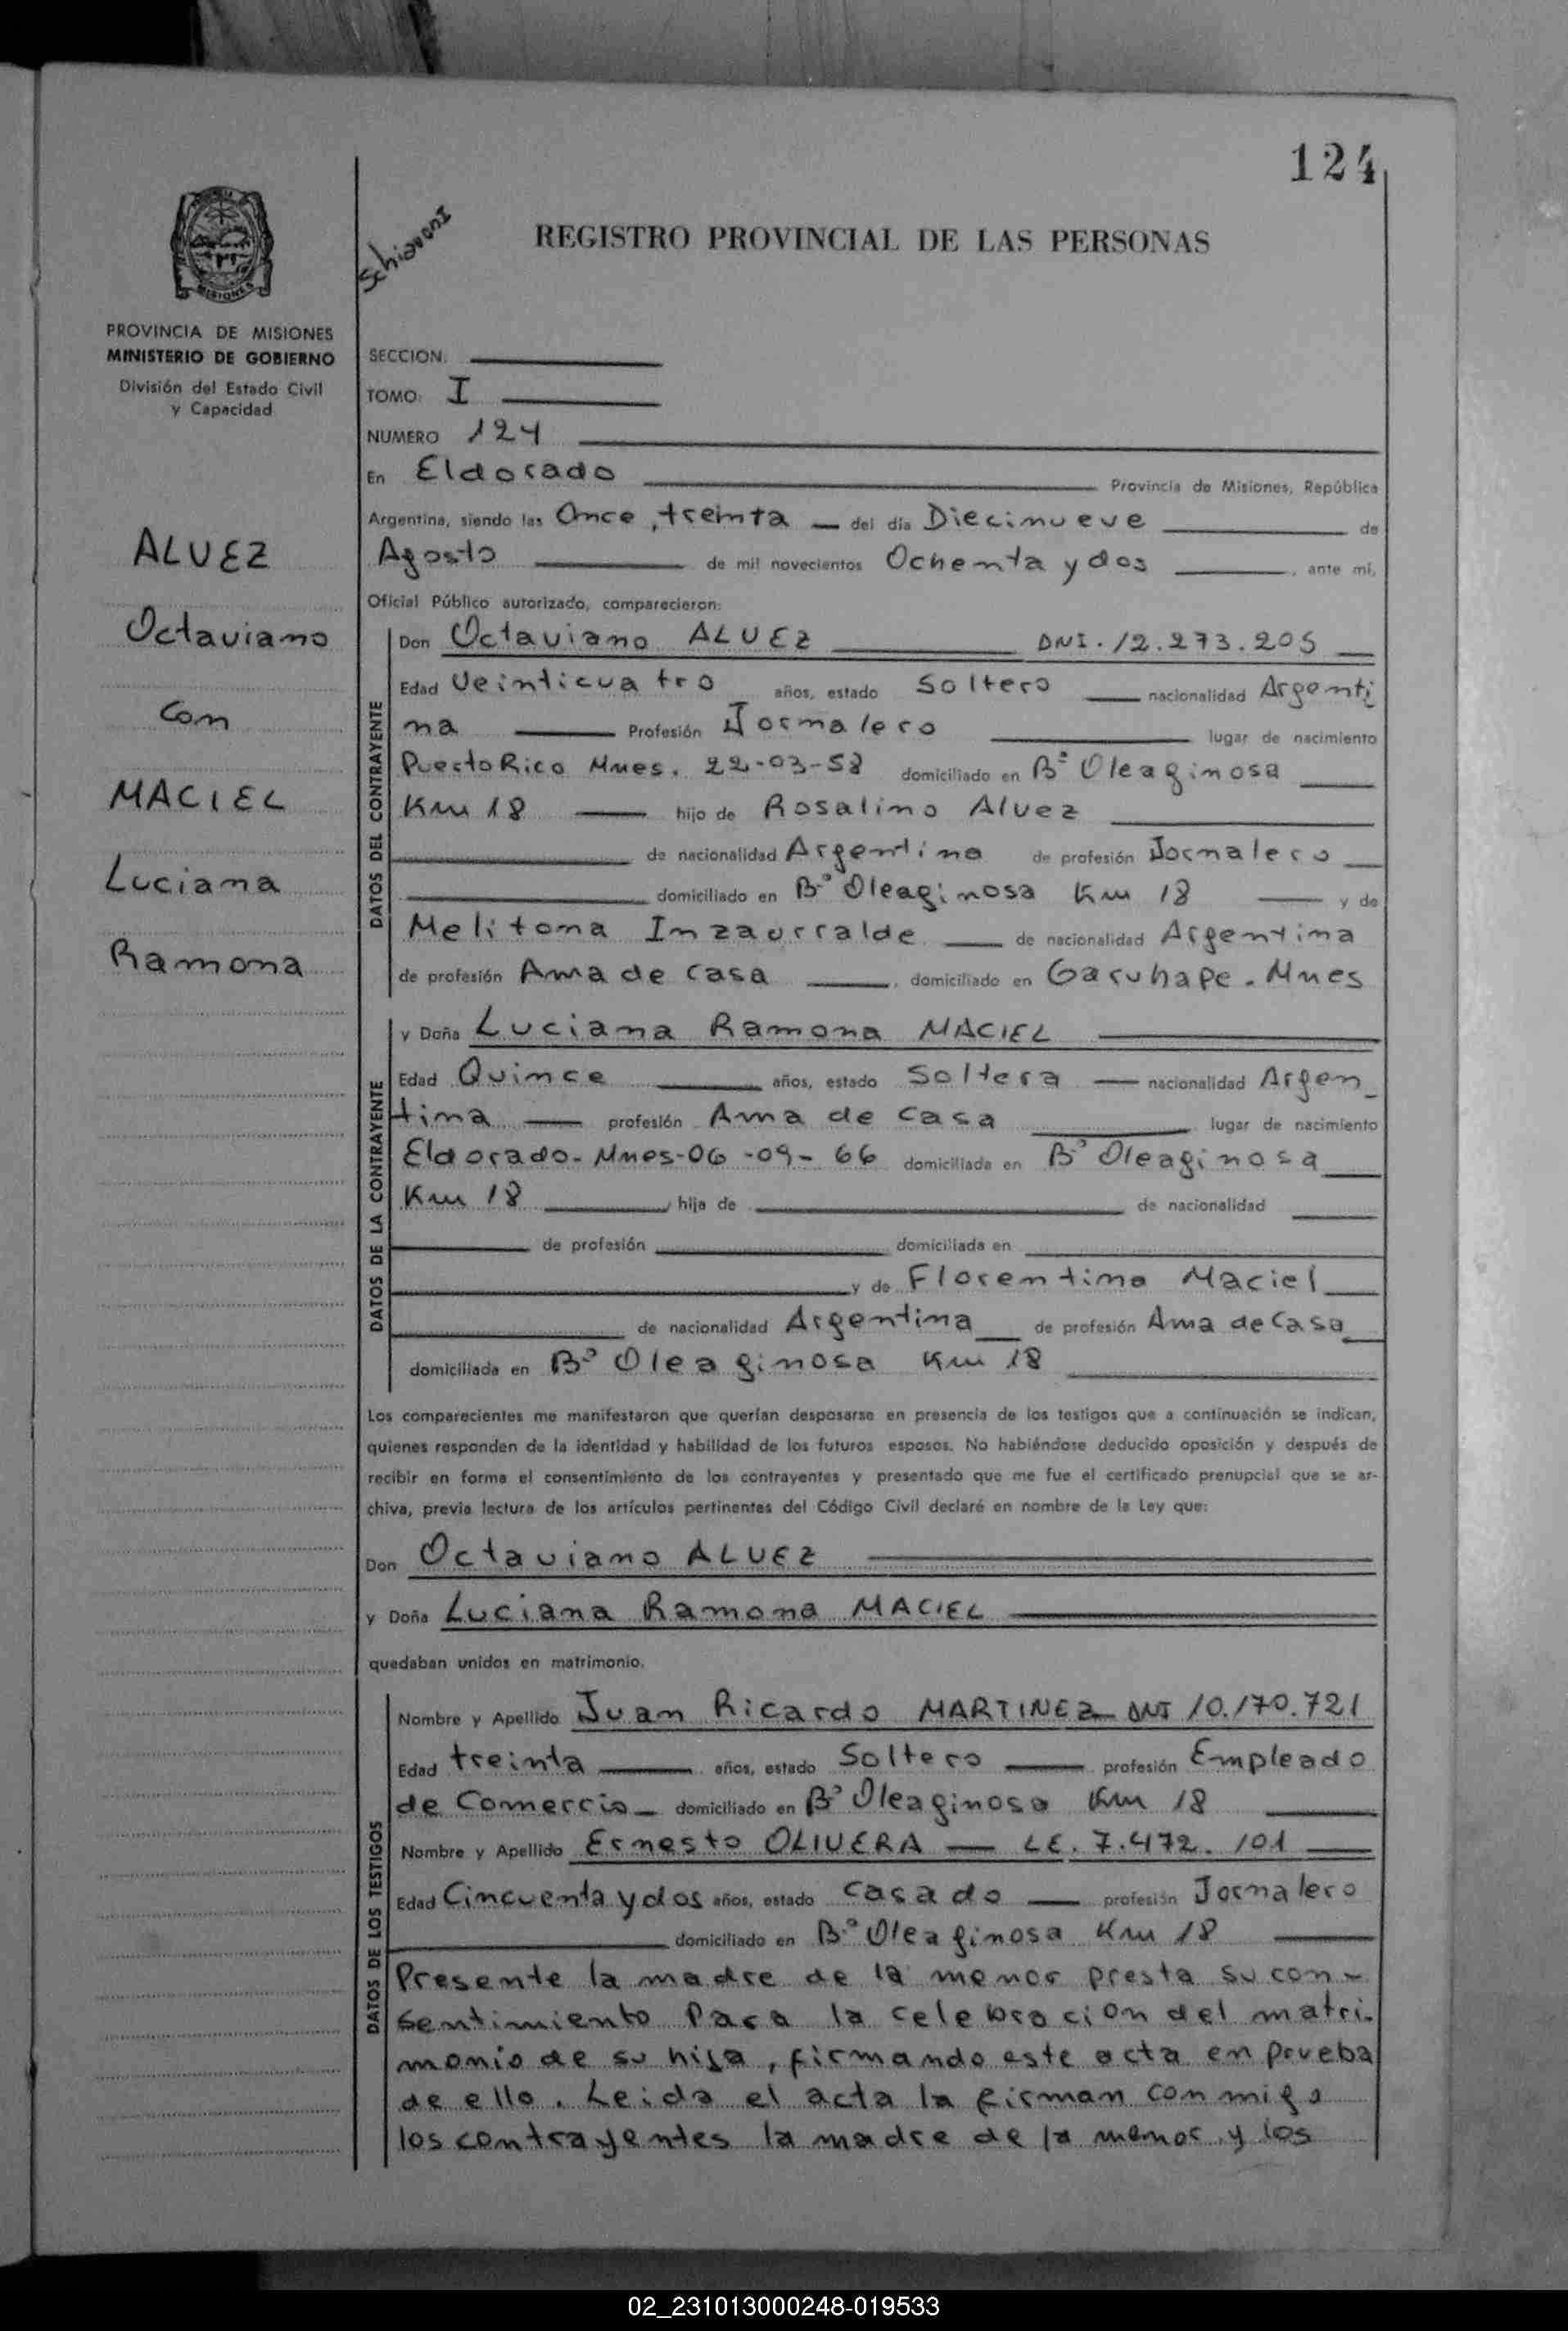 124
Schiavoni
REGISTRO PROVINCIAL DE LAS PERSONAS
MISIONES
PROVINCIA DE MISIONES
MINISTERIO DE GOBIERNO
División del Estado Civil
y Capacidad
ALVEZ
Octaviano
Con
MACIEL
Luciana
Ramona
SECCION:
TOMO: I
NUMERO 124
En Eldorado Provincia de Misiones, República
Argentina, siendo las Once, treinta del día Diecinueve de
Agosto de mil novecientos Ochenta y dos, ante mí,
Oficial Público autorizado, comparecieron:
DATOS DEL CONTRAYENTE
Don Octaviano ALVEZ DNI. 12.273.205
Edad Veinticuatro años, estado Soltero nacionalidad Argenti
na Profesión Jornalero lugar de nacimiento
Puerto Rico Mnes. 22-03-58 domiciliado en B° Oleaginosa
Km 18 hijo de Rosalino Alvez
de nacionalidad Argentina de profesión Jornalero
domiciliado en B° Oleaginosa Km 18 y de
Melitona Inzaurralde de nacionalidad Argentina
de profesión Ama de casa, domiciliado en Garuhape. Mnes
DATOS DE LA CONTRAYENTE
y Doña Luciana Ramona MACIEL
Edad Quince años, estado Soltera nacionalidad Argen_
tina profesión Ama de casa lugar de nacimiento
Eldorado- Mnes-06-09-66 domiciliada en B° Oleaginosa
Km 18 hija de de nacionalidad
de profesión domiciliada en
y de Florentina Maciel
de nacionalidad Argentina de profesión Ama de Casa
domiciliada en B° Oleaginosa Km 18
Los comparecientes me manifestaron que querían desposarse en presencia de los testigos que a continuación se indican,
quienes responden de la identidad y habilidad de los futuros esposos. No habiéndose deducido oposición y después de
recibir en forma el consentimiento de los contrayentes y presentado que me fue el certificado prenupcial que se ar-
chiva, previa lectura de los artículos pertinentes del Código Civil declaré en nombre de la Ley que:
Don Octaviano ALVEZ
y Doña Luciana Ramona MACIEL
quedaban unidos en matrimonio.
DATOS DE LOS TESTIGOS
Nombre y Apellido Juan Ricardo MARTINEZ DNI 10.170.721
Edad treinta años, estado Soltero profesión Empleado
de Comercio domiciliado en B° Oleaginosa Km 18
Nombre y Apellido Ernesto OLIVERA LE. 7.472.101
Edad Cincuenta y dos años, estado casado profesión Jornalero
domiciliado en B° Oleaginosa Km 18
Presente la madre de la menor presta su con-
sentimiento para la celebracion del matri-
monio de su hija, firmando este acta en prueba
de ello. Leida el acta la firman conmigo
los contrayentes la madre de la menor y los
02_231013000248-019533